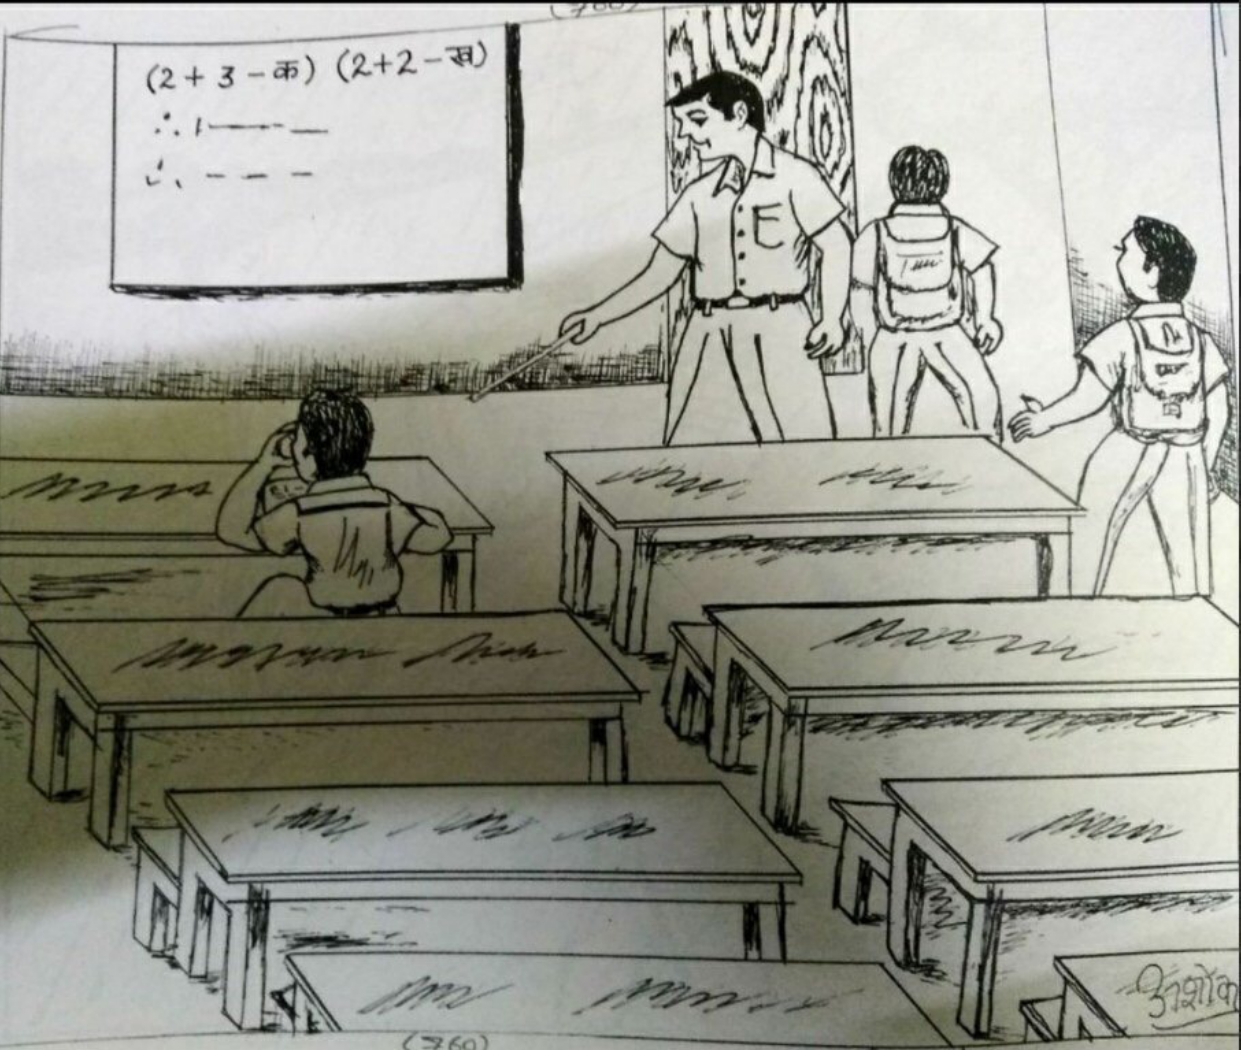 (760)
(2+3-क) (2+2-ख)
∴ 1 — — —
∴ - - -
अशोक
(760)